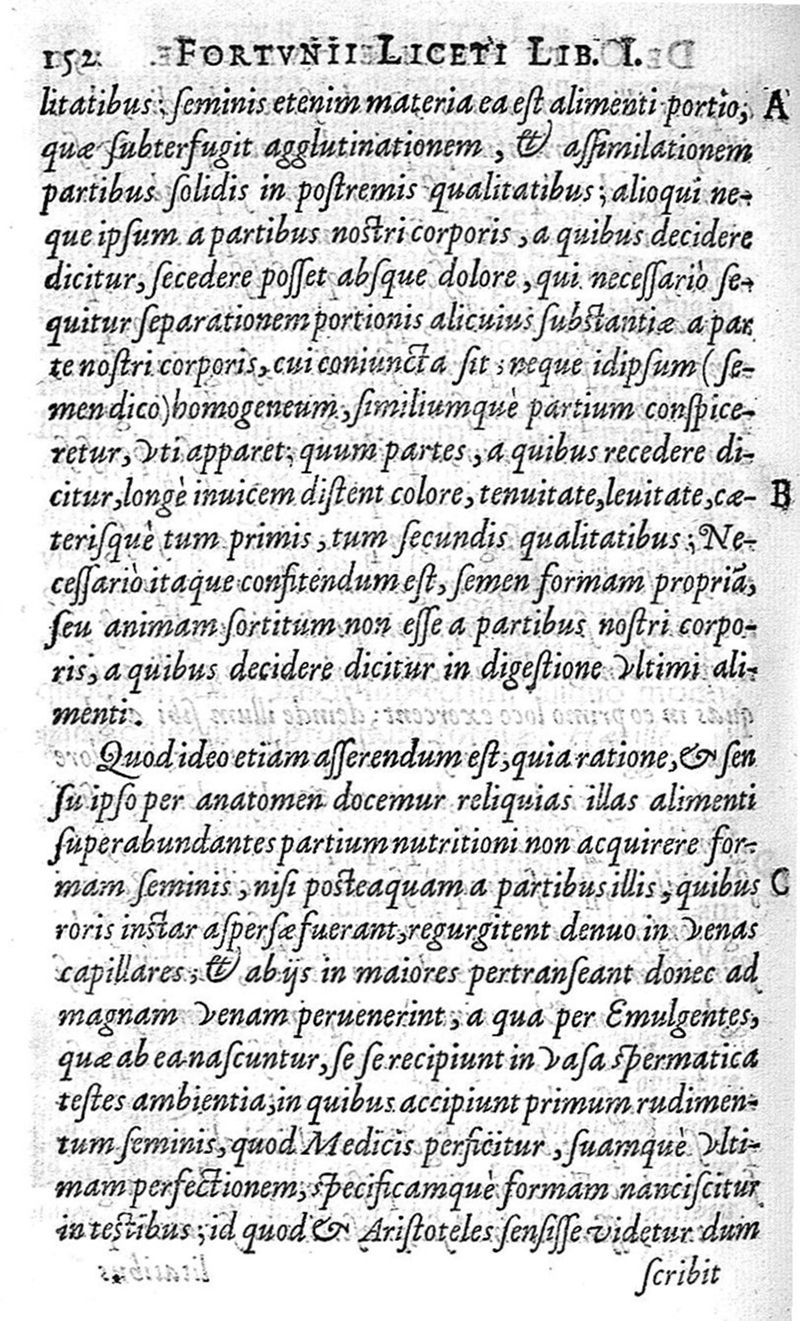 152 FORTVNII LICETI LIB. I.
litatibus; ſeminis etenim materia ea eſt alimenti portio, A
quæ ſubterfugit agglutinationem, & aſſimilationem
partibus ſolidis in poſtremis qualitatibus; alioqui ne-
que ipſum a partibus noſtri corporis, a quibus decidere
dicitur, ſecedere poſſet abſque dolore, qui neceſſariò ſe-
quitur ſeparationem portionis alicuius ſubſtantiæ a par
te noſtri corporis, cui coniuncta ſit; neque idipſum (ſe-
men dico) homogeneum, ſimiliumquè partium conſpice-
retur, vti apparet; quum partes, a quibus recedere di-
citur, longè inuicem diſtent colore, tenuitate, leuitate, cæ- B
teriſquè tum primis, tum ſecundis qualitatibus; Ne-
ceſſariò itaque confitendum eſt, ſemen formam propriā,
ſeu animam ſortitum non eſſe a partibus noſtri corpo-
ris, a quibus decidere dicitur in digeſtione vltimi ali-
menti.
Quod ideo etiam aſſerendum eſt, quia ratione, & ſen
ſu ipſo per anatomen docemur reliquias illas alimenti
ſuperabundantes partium nutritioni non acquirere for-
mam ſeminis, niſi poſteaquam a partibus illis, quibus C
roris inſtar aſperſæ fuerant, regurgitent denuo in venas
capillares; & ab ijs in maiores pertranſeant donec ad
magnam venam peruenerint, a qua per Emulgentes,
quæ ab ea naſcuntur, ſe ſe recipiunt in vaſa ſpermatica
teſtes ambientia, in quibus accipiunt primum rudimen-
tum ſeminis, quod Medicis perficitur, ſuamquè vlti-
mam perfectionem, ſpecificamquè formam nanciſcitur
in teſtibus; id quod & Ariſtoteles ſenſiſſe videtur dum
ſcribit